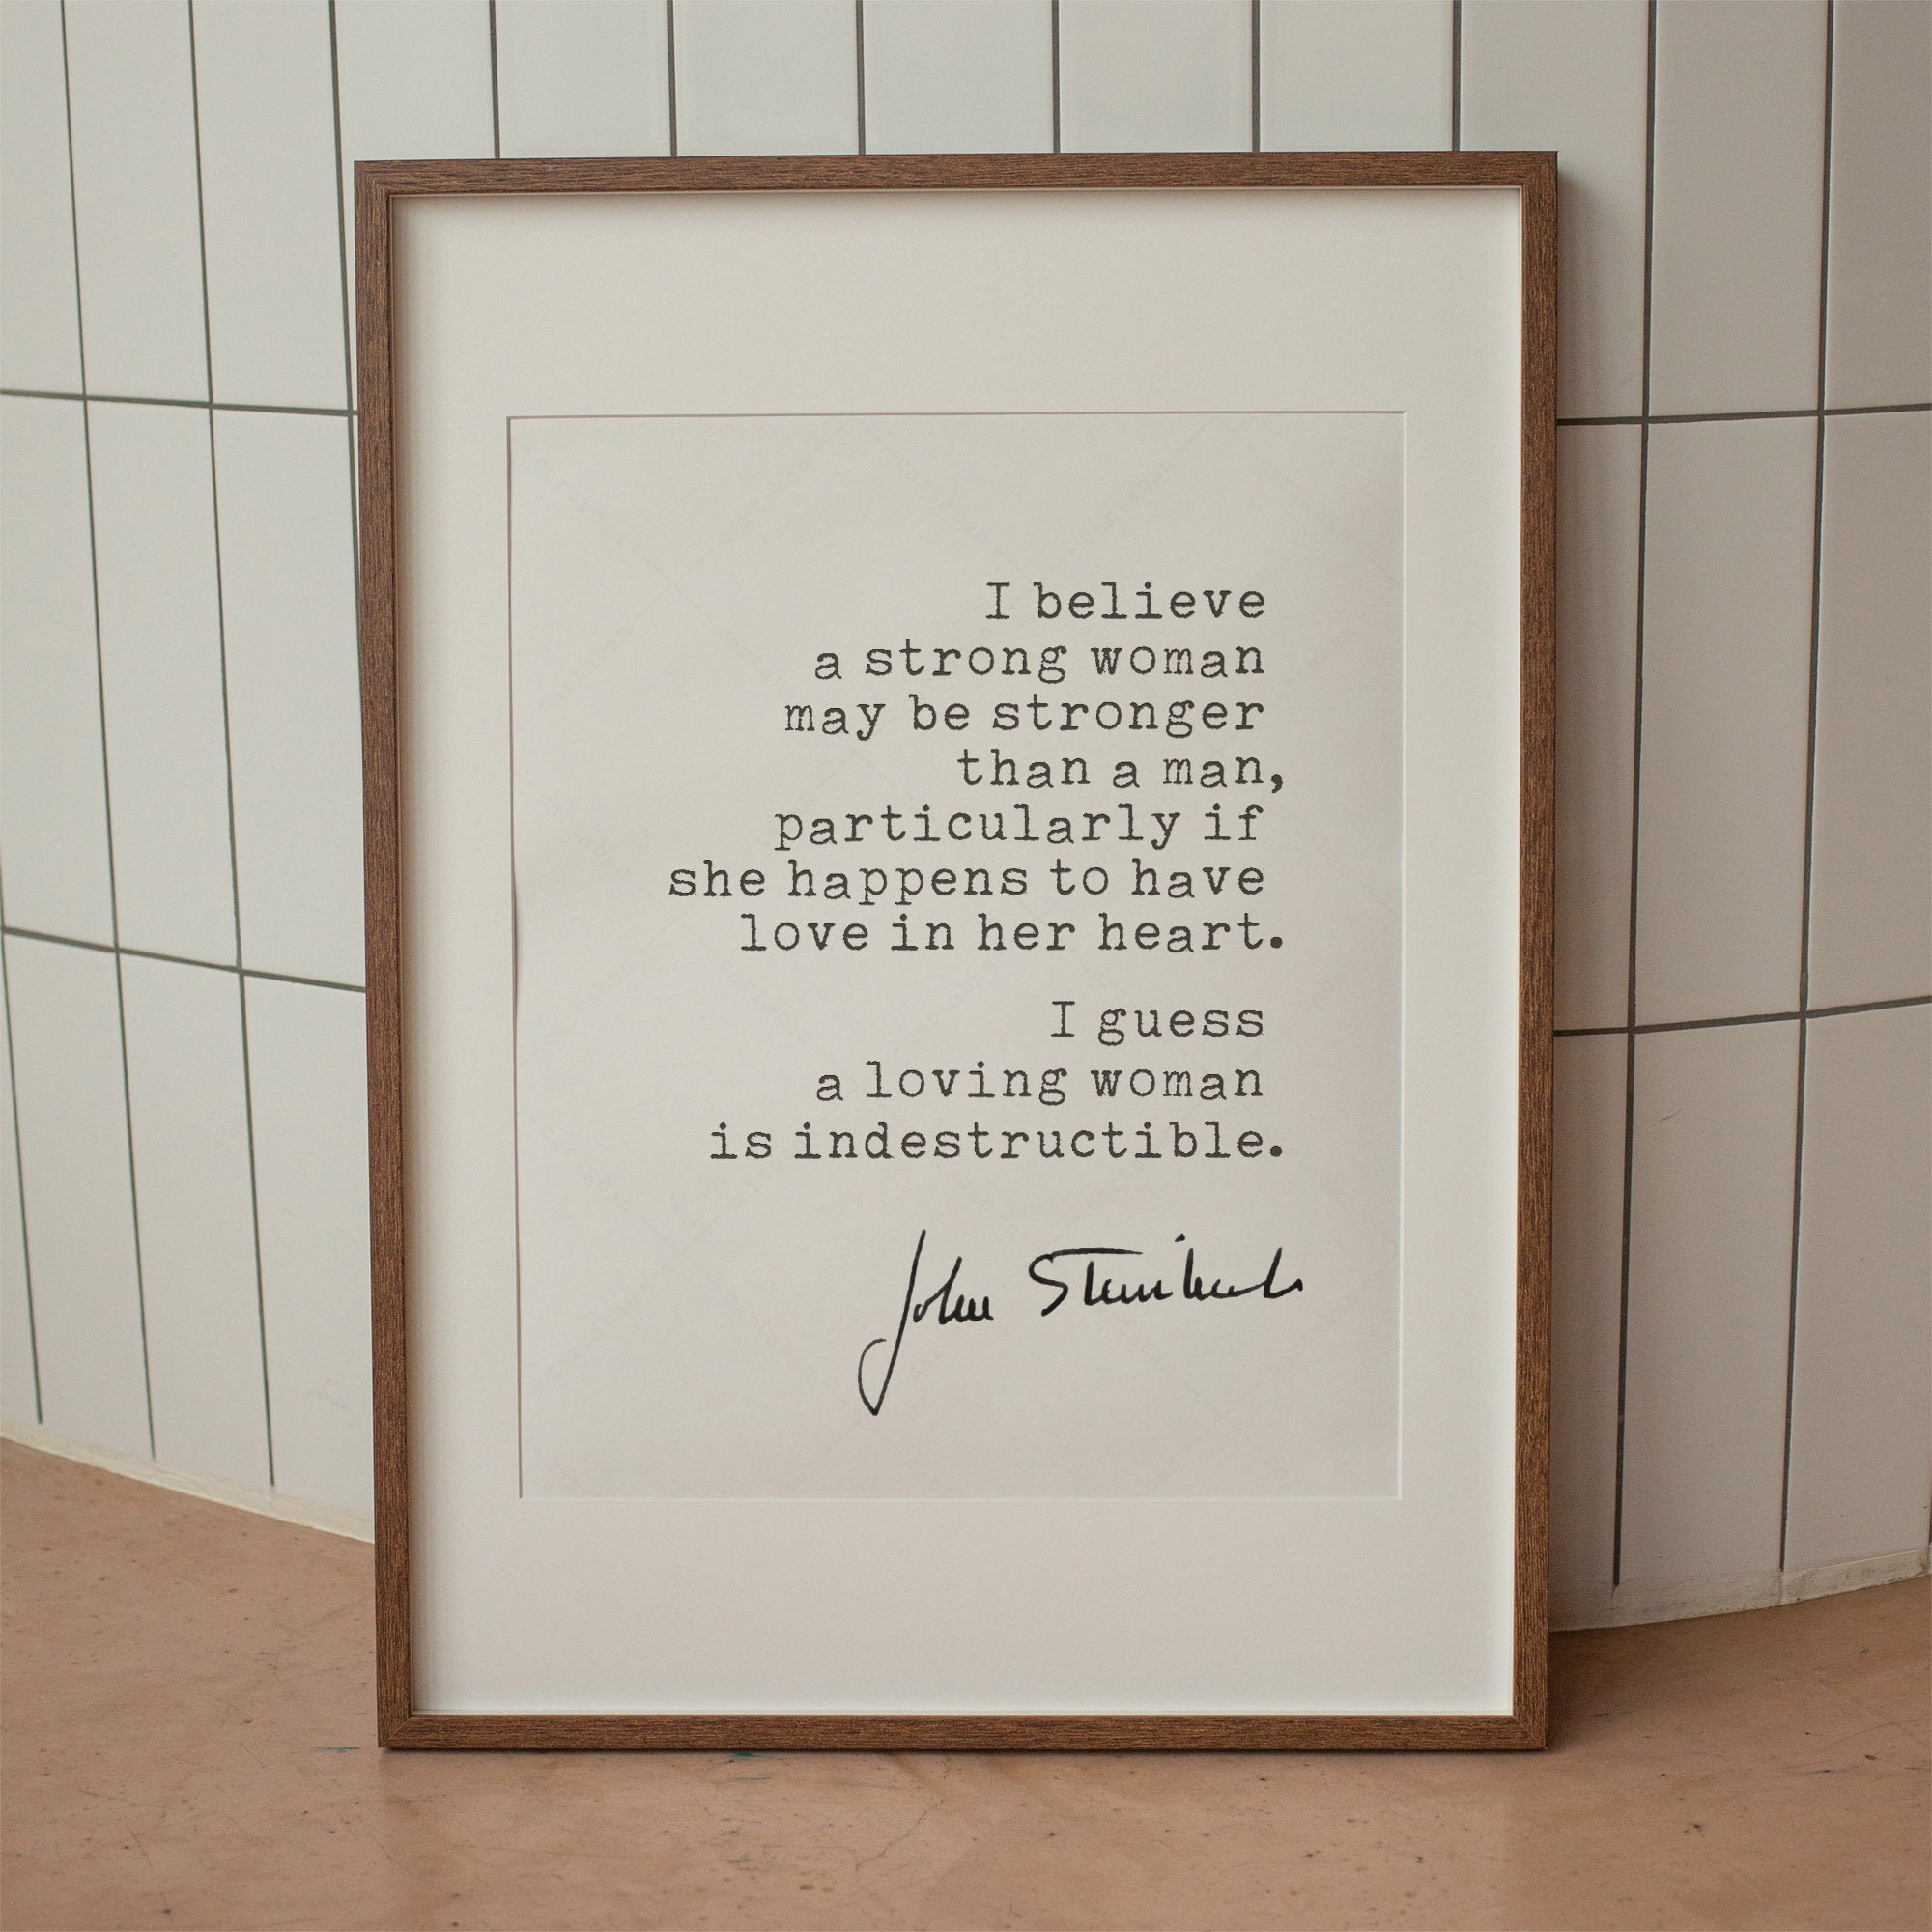 I believe
a strong woman
may be stronger
than a man,
particularly if
she happens to have
love in her heart.
I guess
a loving woman
is indestructible.
John Steinbeck